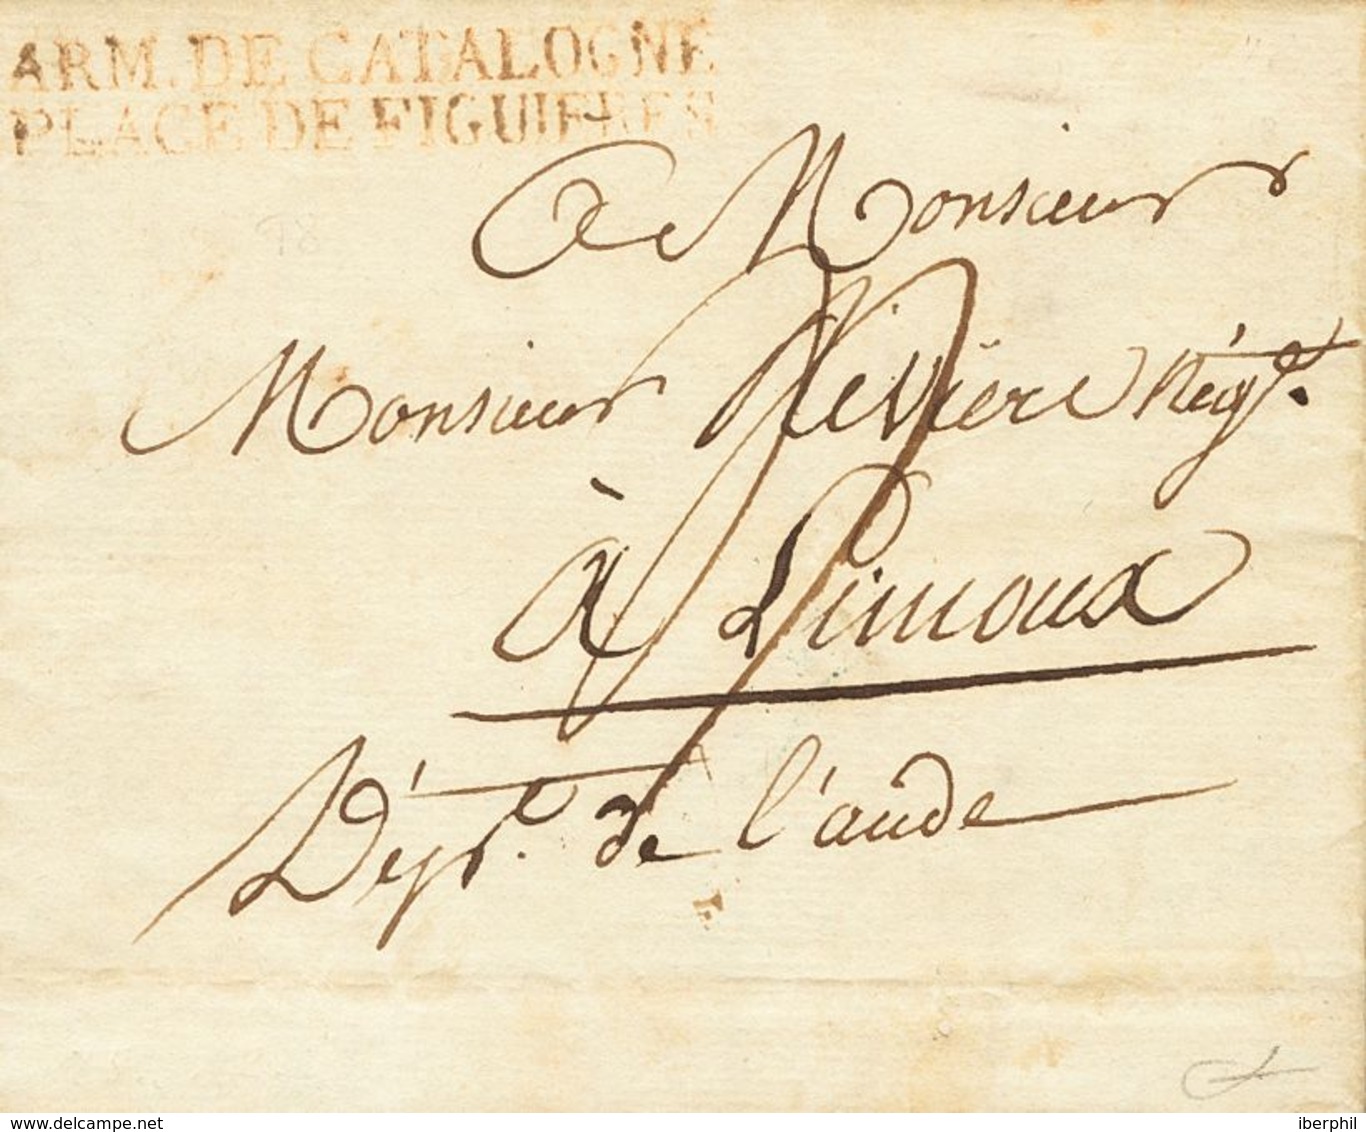 ARM. DE CATALOGNE
PLACE DE FIGUIERES
A Monsieur
Monsieur Revière Négt.
à Limoux
Dépt. de l'aude
delcampe.net
iberphil